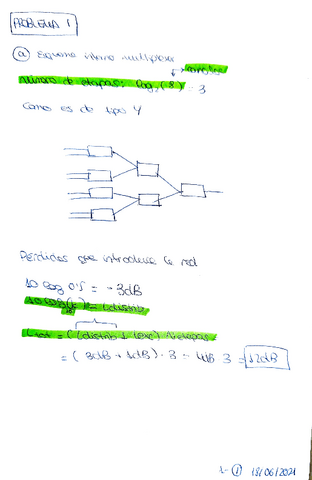 PROBLEMA 1
(a) Esquema interno multiplexor
canales
número de etapas: log₂(8) = 3
Como es de tipo Y
Pérdidas que introduce la red
10 log 0.5 = -3dB
10 log(
) = Ldistrib
Ltot = (Ldistrib + Lexc) · N etapas =
= (3dB + 1dB) · 3 = 4dB · 3 = 12dB
1-① 18/06/2021